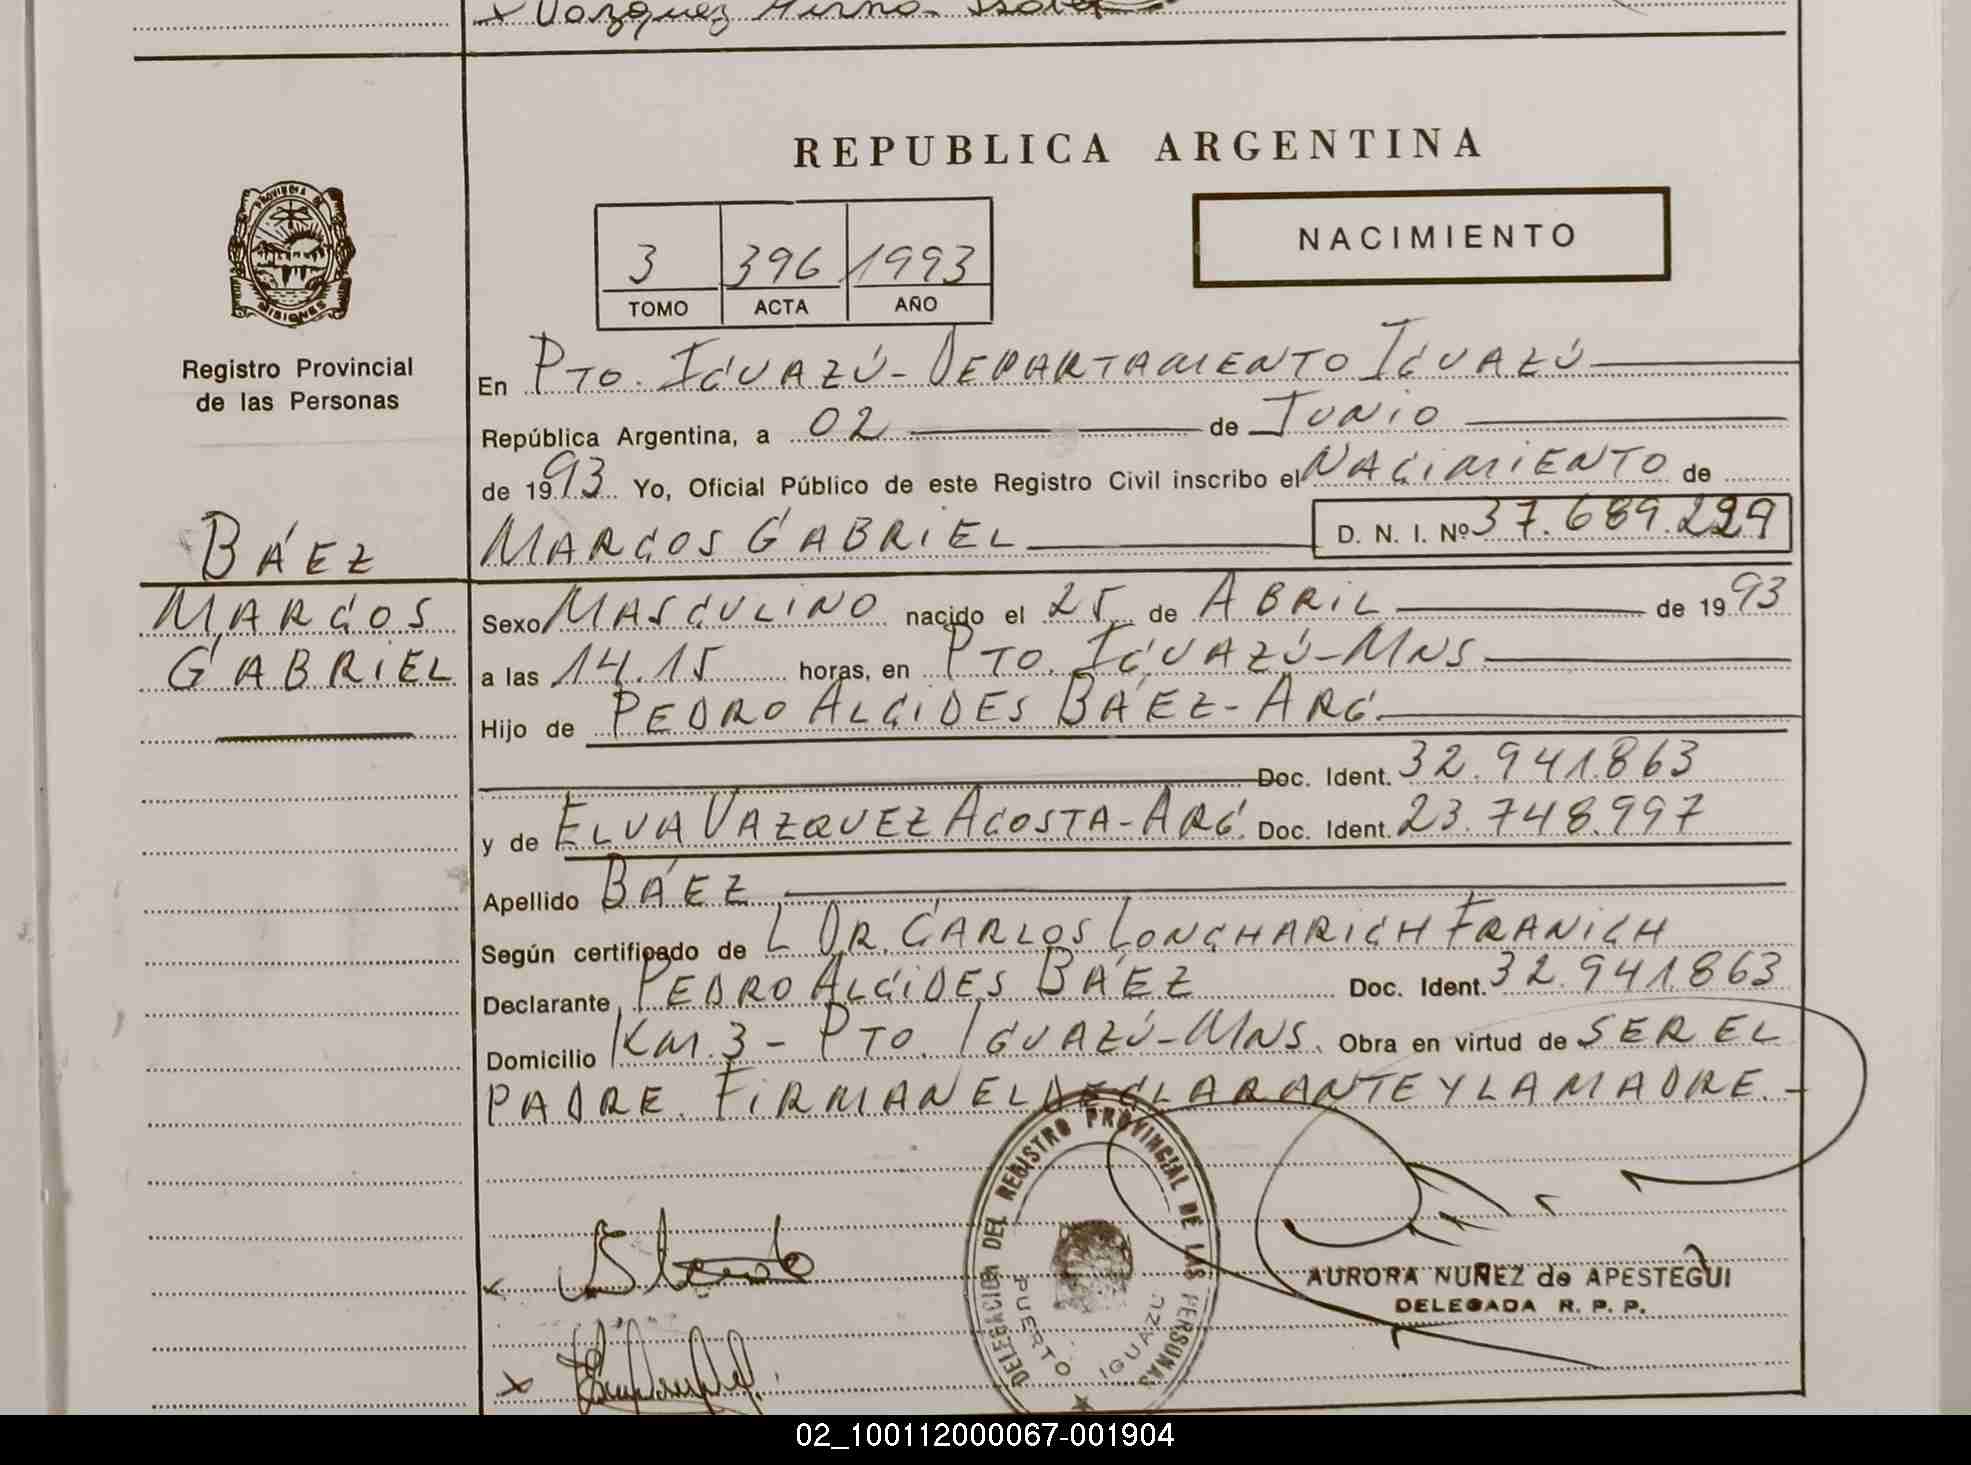 x Vazquez Mirna Isabel
REPUBLICA ARGENTINA
PROVINCIA DE MISIONES
Registro Provincial
de las Personas
3 396 1993
TOMO ACTA AÑO
NACIMIENTO
En PTO. IGUAZÚ - DEPARTAMENTO IGUAZÚ
República Argentina, a 02 de JUNIO
de 1993 Yo, Oficial Público de este Registro Civil inscribo el NACIMIENTO de
MARCOS GABRIEL D. N. I. Nº 37.689.229
BÁEZ
MARCOS
GABRIEL
Sexo MASCULINO nacido el 25 de ABRIL de 1993
a las 14.15 horas, en PTO. IGUAZÚ - MNS.
Hijo de PEDRO ALCIDES BÁEZ - ARG.
Doc. Ident. 32.941.863
y de ELVA VAZQUEZ ACOSTA - ARG. Doc. Ident. 23.748.997
Apellido BÁEZ
Según certificado de L DR. CARLOS LONCHARICH FRANICH
Declarante PEDRO ALCIDES BÁEZ Doc. Ident. 32.941.863
Domicilio KM. 3 - PTO. IGUAZÚ - MNS. Obra en virtud de SER EL
PADRE. FIRMAN EL DECLARANTE Y LA MADRE. -
DELEGACION DEL REGISTRO PROVINCIAL DE LAS PERSONAS
PUERTO IGUAZU
AURORA NUÑEZ de APESTEGUI
DELEGADA R. P. P.
x
02_100112000067-001904